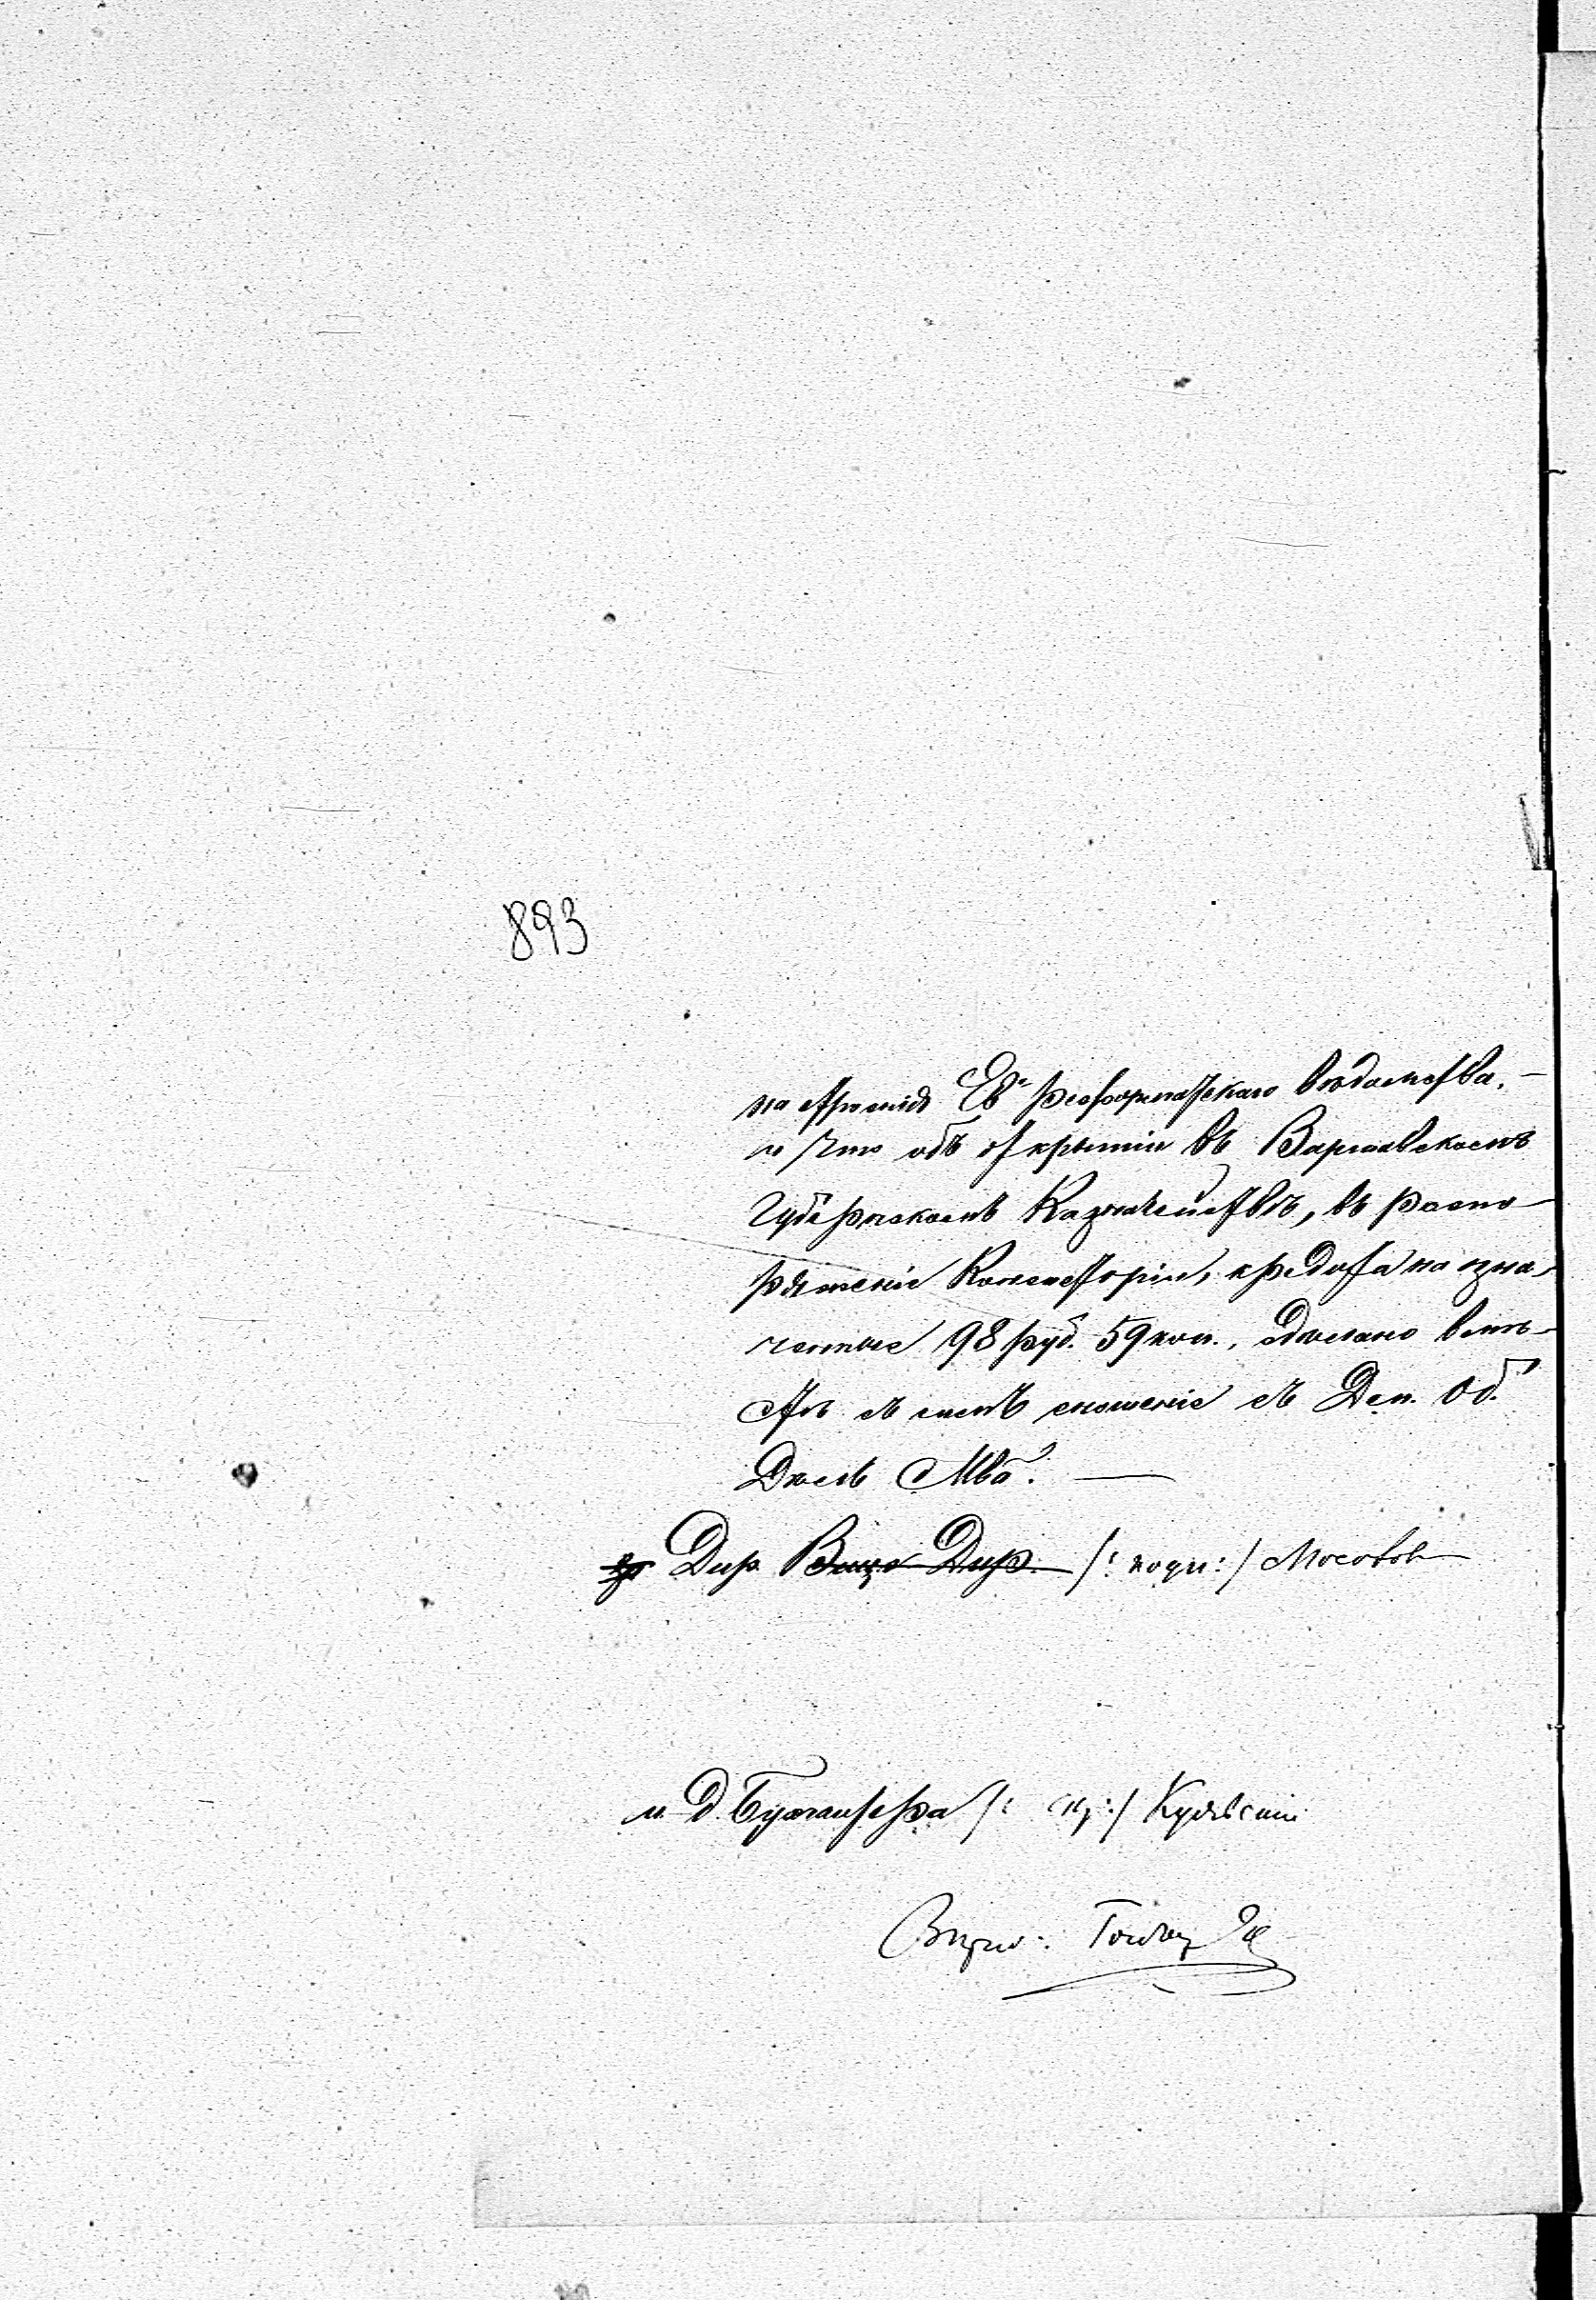 893
на строенія Ев. реформатскаго вѣдомства,
и что объ открытіи въ Варшавскомъ
Губернскомъ Казначействѣ, въ распо-
ряженіе Консисторіи, кредита на озна-
ченные 98 руб. 59 коп., сдѣлано вмѣ-
стѣ съ симъ сношеніе съ Деп. Об.
Дѣлъ Мва.
Дир. Вице Дир. /: подп :/ Мосолов
и. д. Бухгалтера /: ск :/ Кулявскій
Вѣрно: